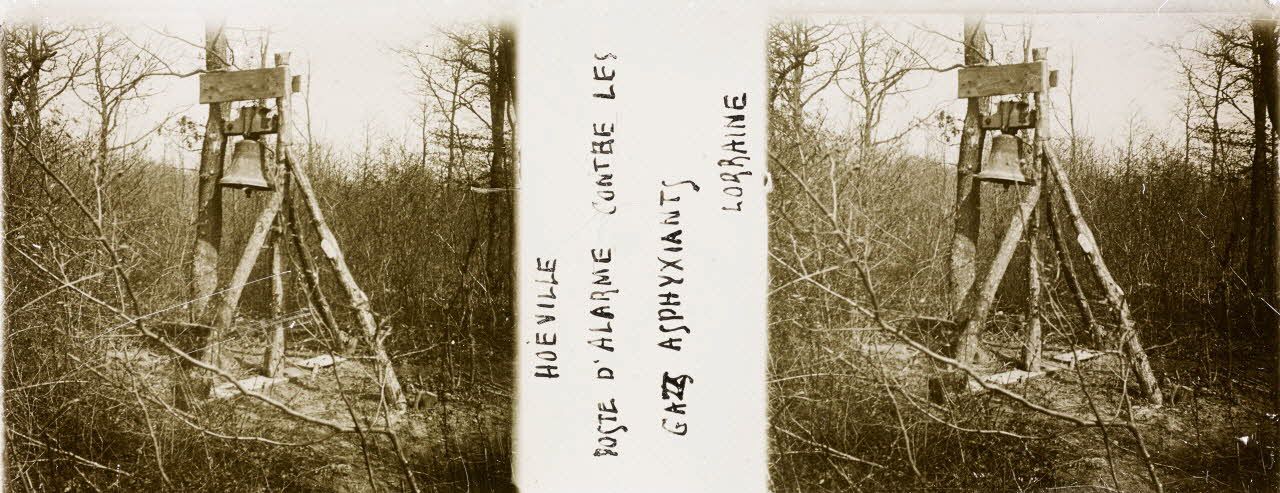 HOËVILLE
POSTE D'ALARME CONTRE LES
GAZS ASPHYXIANTS
LORRAINE